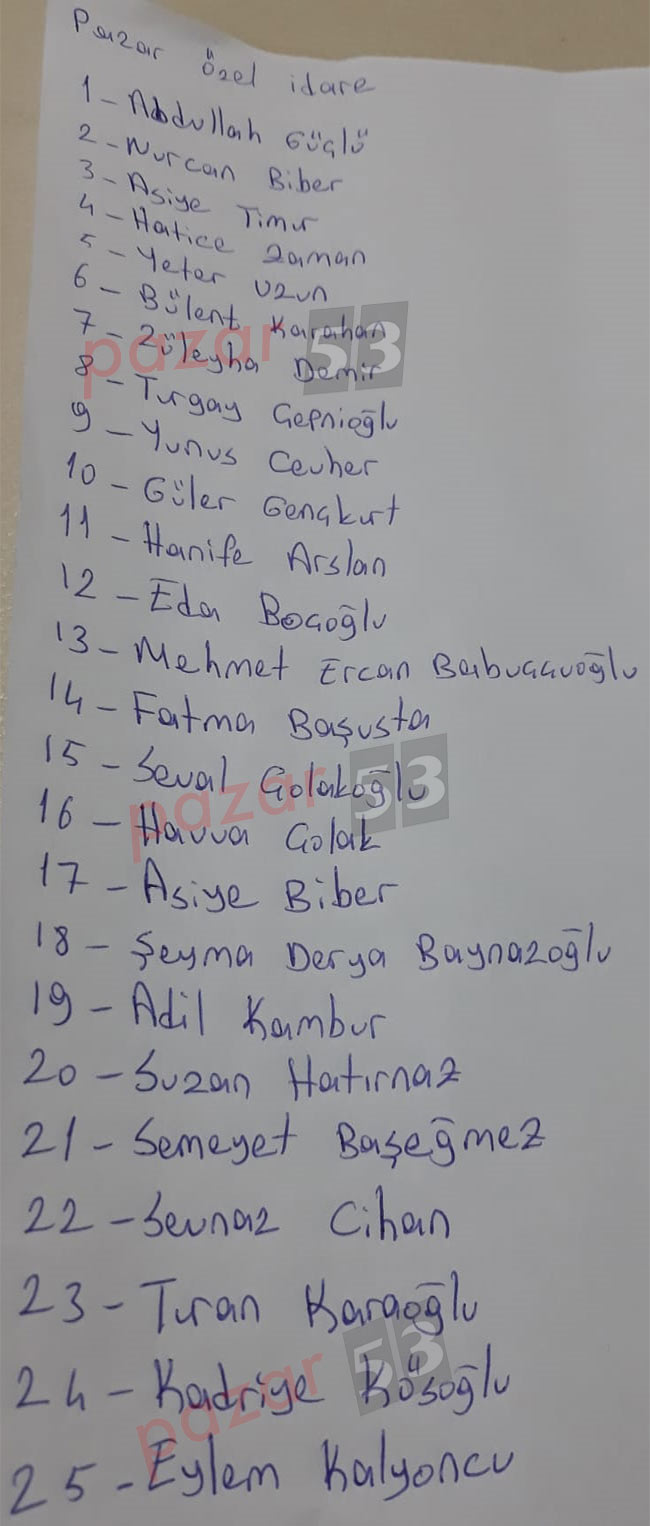 Pazar Özel idare
1 - Abdullah Güçlü
2 - Nurcan Biber
3 - Asiye Timur
4 - Hatice Zaman
5 - Yeter Uzun
6 - Bülent Karahan
7 - Züleyha Demir
8 - Turgay Gepnioğlu
9 - Yunus Cevher
10 - Güler Gençkurt
11 - Hanife Arslan
12 - Eda
13 - Mehmet Ercan
14 - Fatma Başusta
15 - Seval Golakoğlu
16 - Havva Golak
17 - Asiye Biber
18 - Şeyma Derya Baynazoğlu
19 - Adil Kambur
20 - Suzan Hatırnaz
21 - Semeyet Başeğmez
22 - Sevnaz Cihan
23 - Turan Karaoğlu
24 - Kadriye Kösoğlu
25 - Eylem Kalyoncu
pazar 53
pazar 53
pazar 53